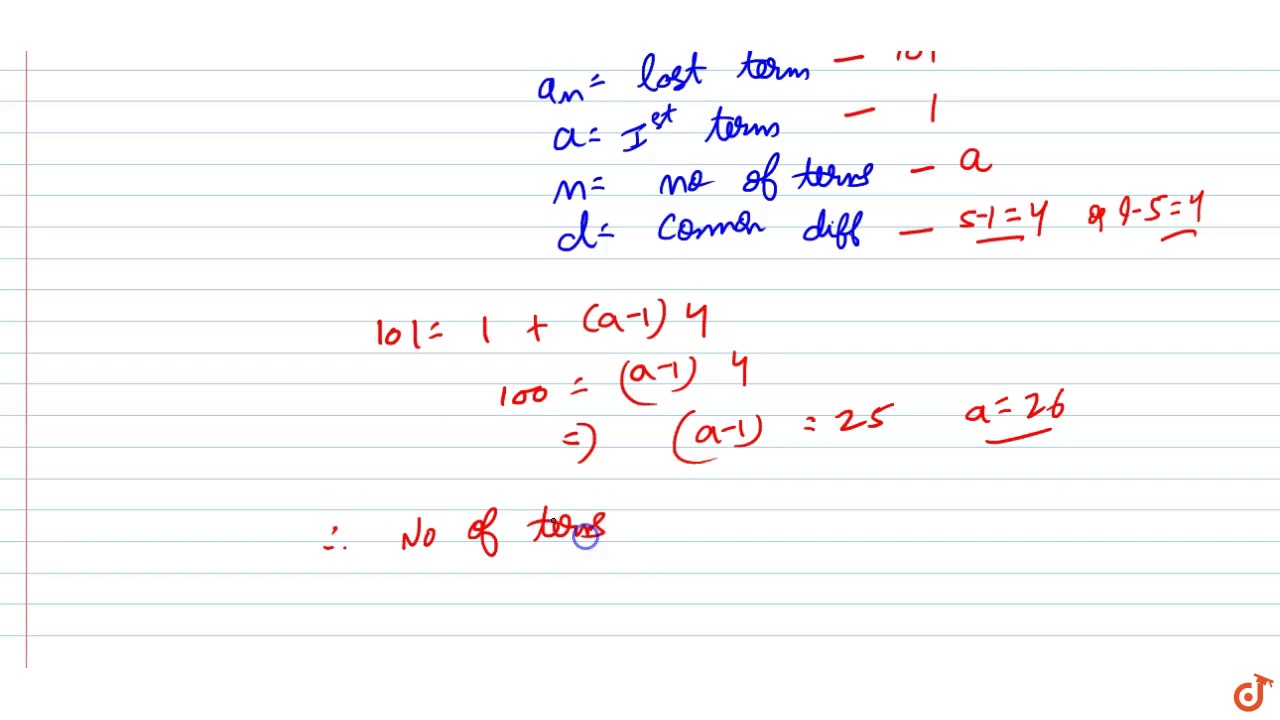 an = last term — 101
a = Ist term — 1
n = no of terms — a
d = common diff — 5-1=4 or 9-5=4
101 = 1 + (a-1) 4
100 = (a-1) 4
=) (a-1) = 25 a = 26
∴ No of terms